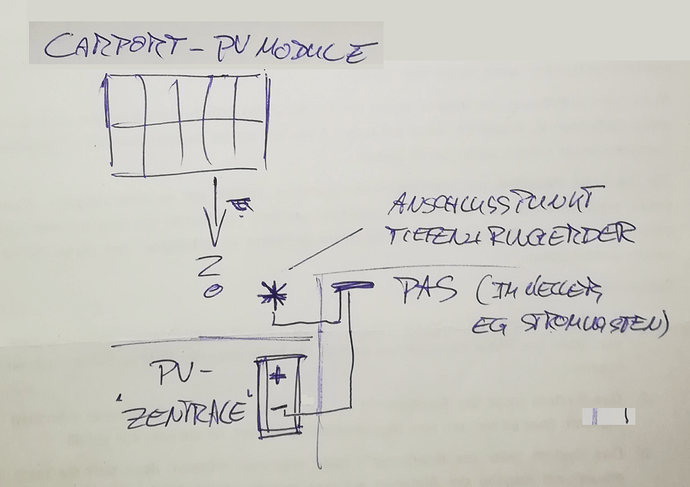 CARPORT - PV MODULE
ANSCHLUSSPUNKT
TIEFEN & RINGERDER
PAS (IM KELLER,
EG STROMKASTEN)
PV-
"ZENTRALE"
+
-